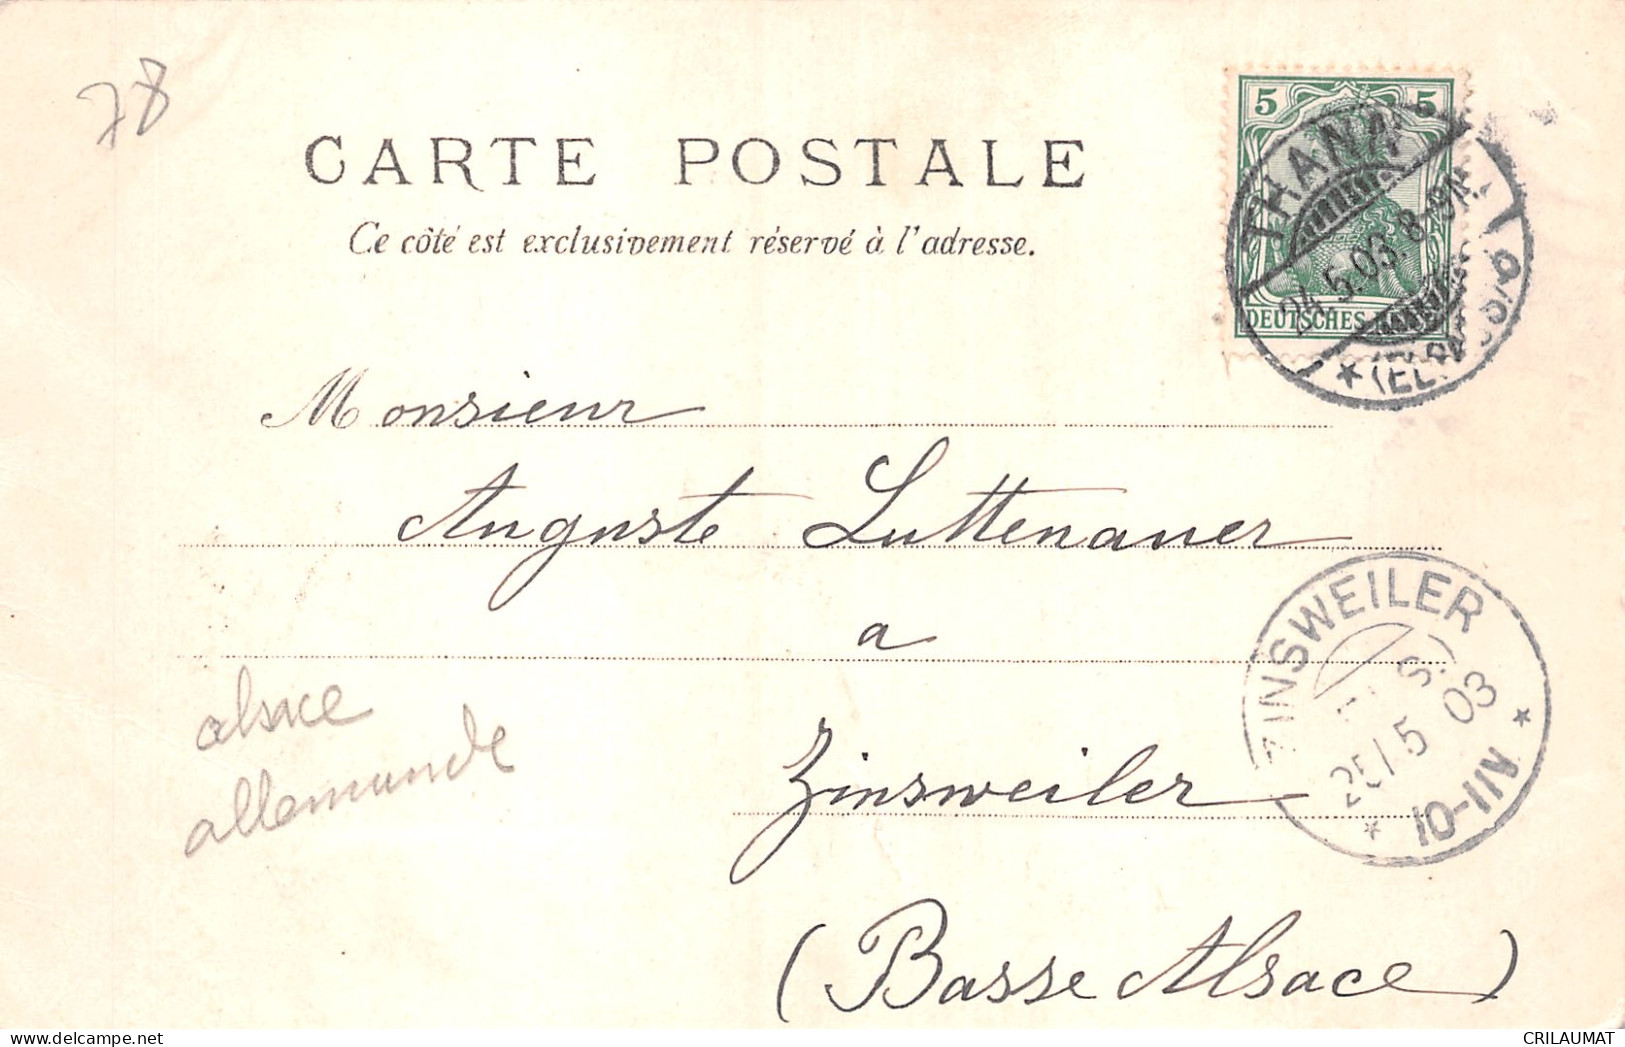 78
CARTE POSTALE
Ce côté est exclusivement réservé à l'adresse.
5 5
DEUTSCHES
THANN
24.5.03. 8-9N.
Monsieur
Auguste Luttenauer
a
Zinsweiler
(Basse Alsace)
ZINSWEILER
25/5 03
10-11V
alsace
allemande
CRILAUMAT